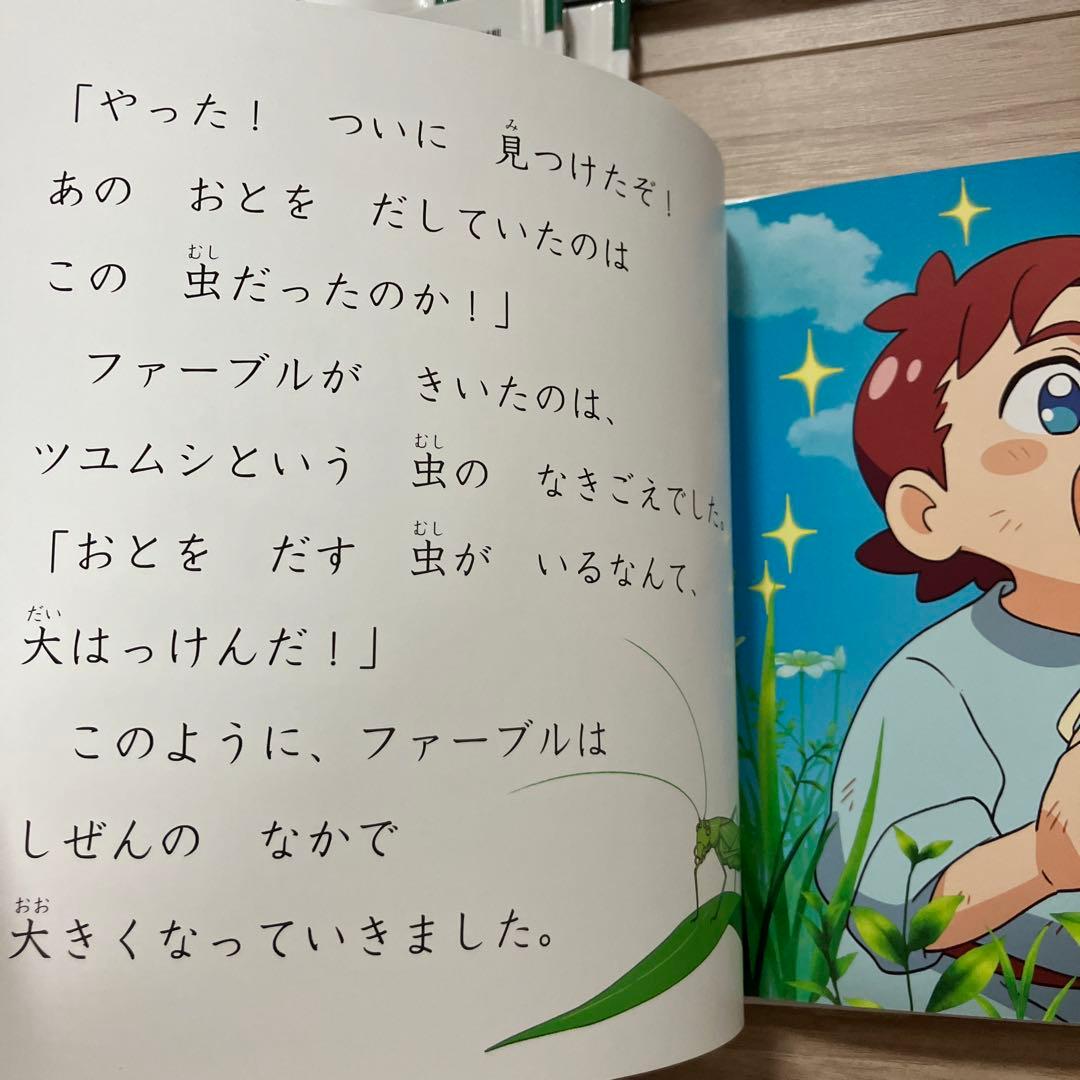 「やった！　ついに　見つけたぞ！
あの　おとを　だしていたのは
この　虫だったのか！」
ファーブルが　きいたのは、
ツユムシという　虫の　なきごえでした。
「おとを　だす　虫が　いるなんて、
大はっけんだ！」
このように、ファーブルは
しぜんの　なかで
大きくなっていきました。